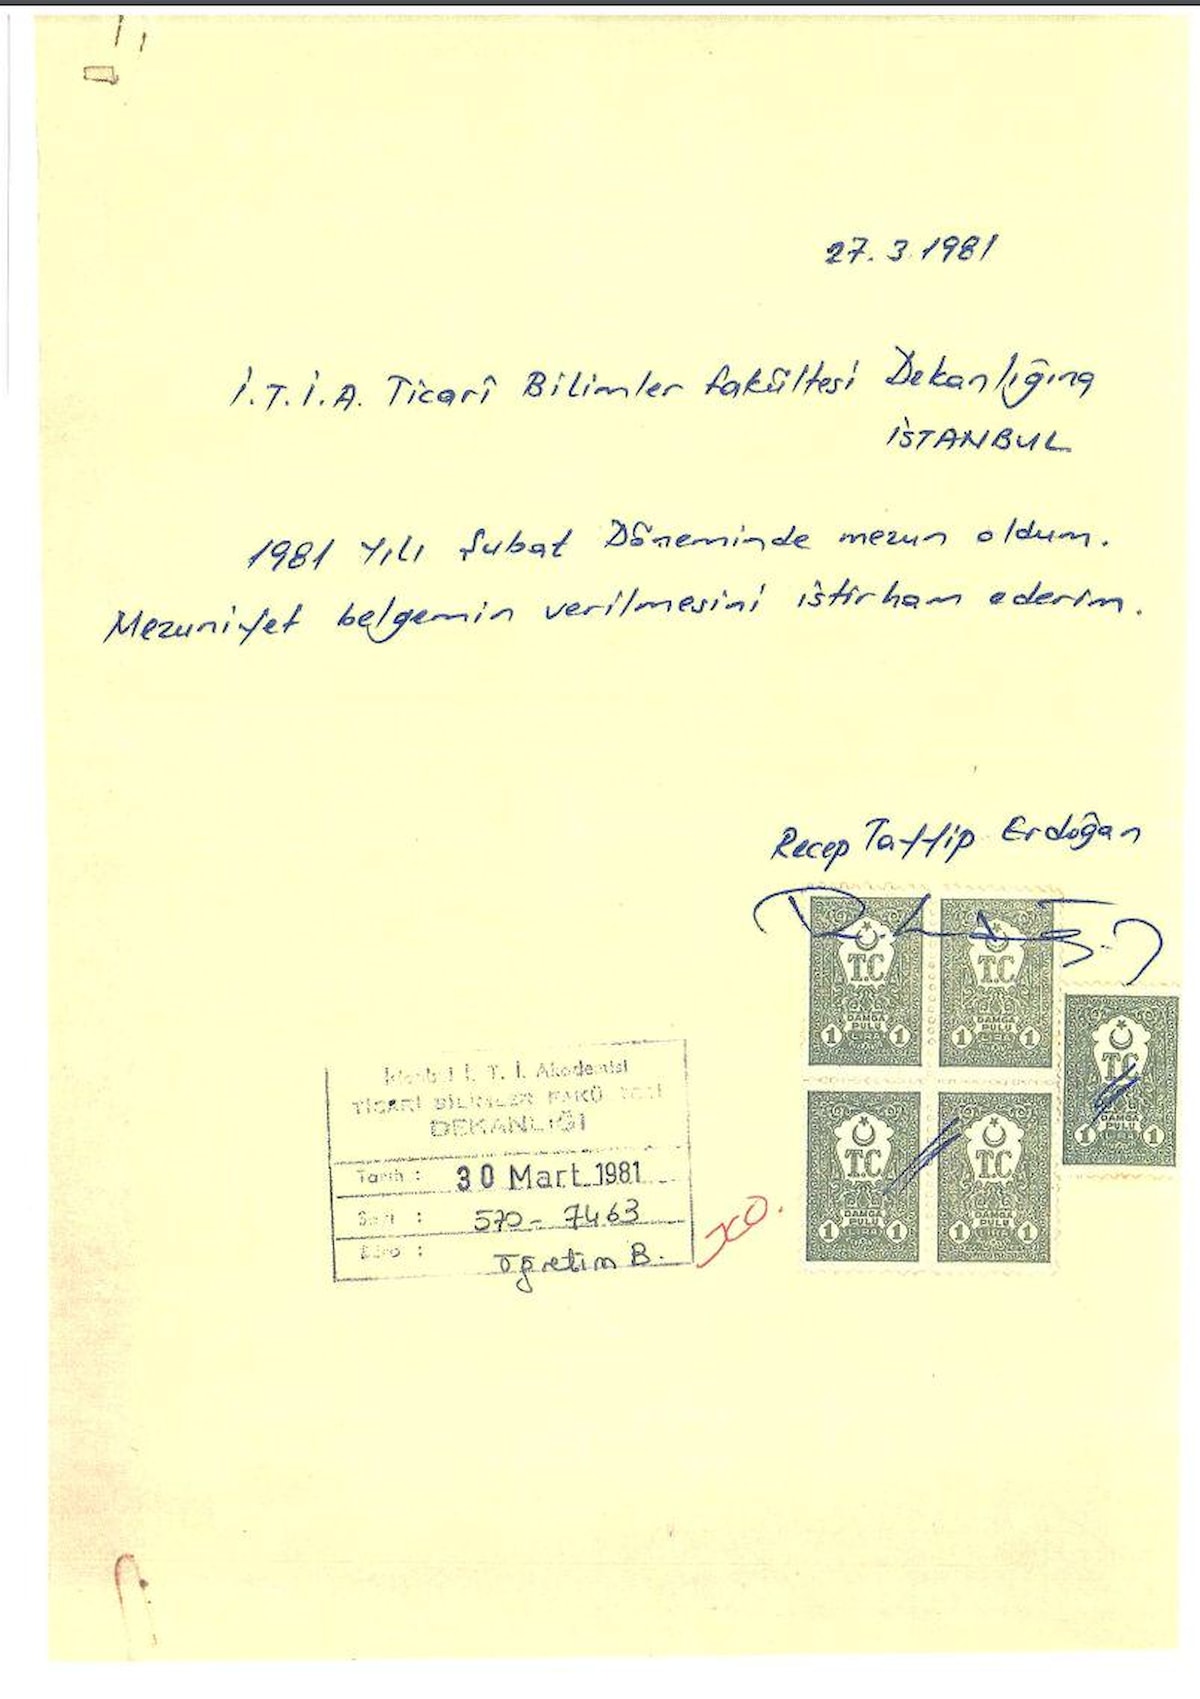 27.3.1981
İ.T.İ.A. Ticarî Bilimler fakültesi Dekanlığına
İSTANBUL
1981 Yılı Şubat Döneminde mezun oldum.
Mezuniyet belgemin verilmesini istirham ederim.
Recep Tayyip Erdoğan
T.C DAMGA PULU 1 LİRA 1
T.C DAMGA PULU 1 LİRA 1
T.C DAMGA PULU 1 LİRA 1
T.C DAMGA PULU 1 LİRA 1
T.C DAMGA PULU 1 LİRA 1
İstanbul İ. T. İ. Akademisi
TİCARİ BİLİMLER FAKÜLTESİ
DEKANLIĞI
Tarih : 30 Mart 1981
Sayı : 570-7463
Büro : Öğretim B.